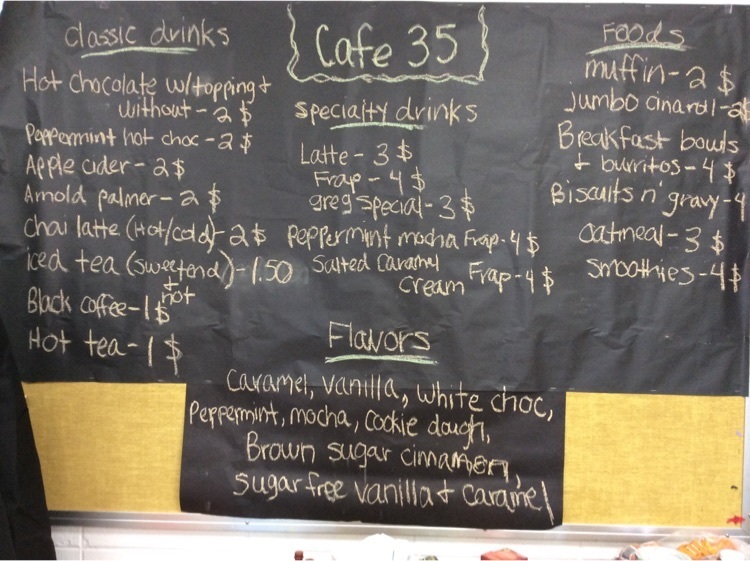 Classic drinks
Hot chocolate w/topping +
without - 2 $
Peppermint hot choc - 2 $
Apple cider - 2 $
Arnold palmer - 2 $
Chai latte (Hot/cold) - 2 $
Iced tea (sweetend) - 1.50
+ not
Black coffee - 1 $
Hot tea - 1 $
Cafe 35
Specialty drinks
Latte - 3 $
Frap - 4 $
greg special - 3 $
Peppermint mocha Frap - 4 $
Salted Caramel
Cream Frap - 4 $
Foods
muffin - 2 $
Jumbo cinaroll - 2$
Breakfast bowls
+ burritos - 4 $
Biscuits n' gravy - 4
oatmeal - 3 $
smoothies - 4 $
Flavors
Caramel, vanilla, white choc,
Peppermint, mocha, cookie dough,
Brown sugar cinnamon,
sugar free vanilla + caramel